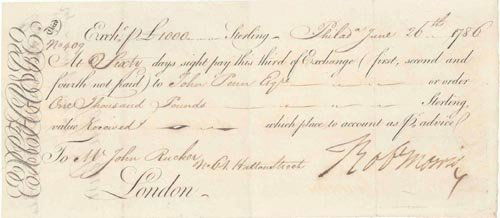 Exch: p £1000 Sterling. Philad.a June 26th 1786
No 409
At Sixty days sight pay this third of Exchange (first, second and
fourth not paid) to John Penn Esqr or order
One Thousand Pounds Sterling,
value Received which place to account as p advice
To Mr John Rucker No 64 Hatton Street
London
Robt Morris